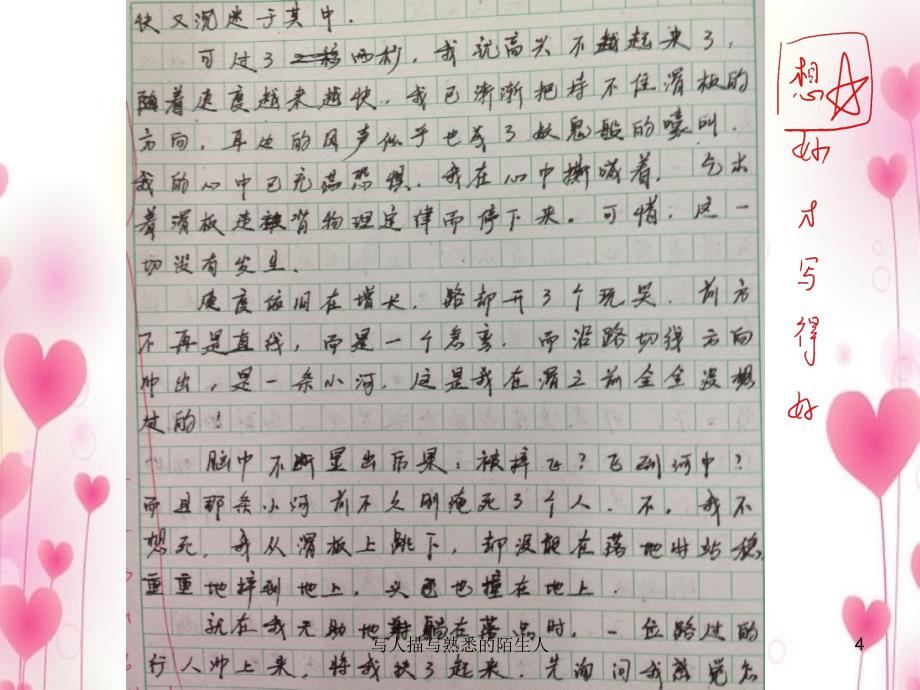 快又沉迷于其中.
可过了两秒,我就高兴不起来了,
随着速度越来越快,我已渐渐把持不住滑板的
方向,耳边的风声似乎也成了妖鬼般的嚎叫.
我的心中已充满恐惧.我在心中撕喊着.乞求
着滑板违背物理定律而停下来。可惜.这一
切没有发生.
速度依旧在增长.路却开了个玩笑.前方
不再是直线,而是一个急弯.而沿路切线方向
冲出,是一条小河.这是我在滑之前完全没想
过的!
脑中不断显出后果:被摔飞?飞到河中?
而且那条小河前不久刚淹死了个人.不.我不
想死,我从滑板上跳下,却没能在落地时站稳
重重地摔到地上,也撞在地上.
就在我无助地躺在时,一位路过的
行人冲上来,将我扶了起来.先询问我感觉怎
想
好
才
写
得
好
写人描写熟悉的陌生人
4